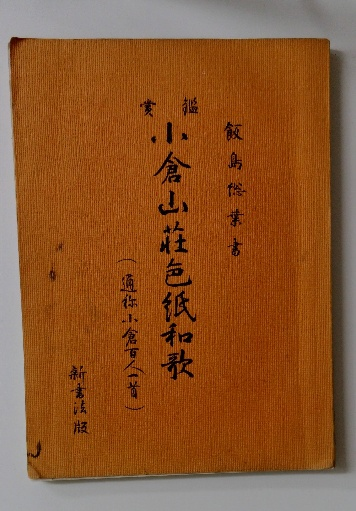 飯島總葉書
鑑賞
小倉山荘色紙和歌
（通称小倉百人一首）
新書法版